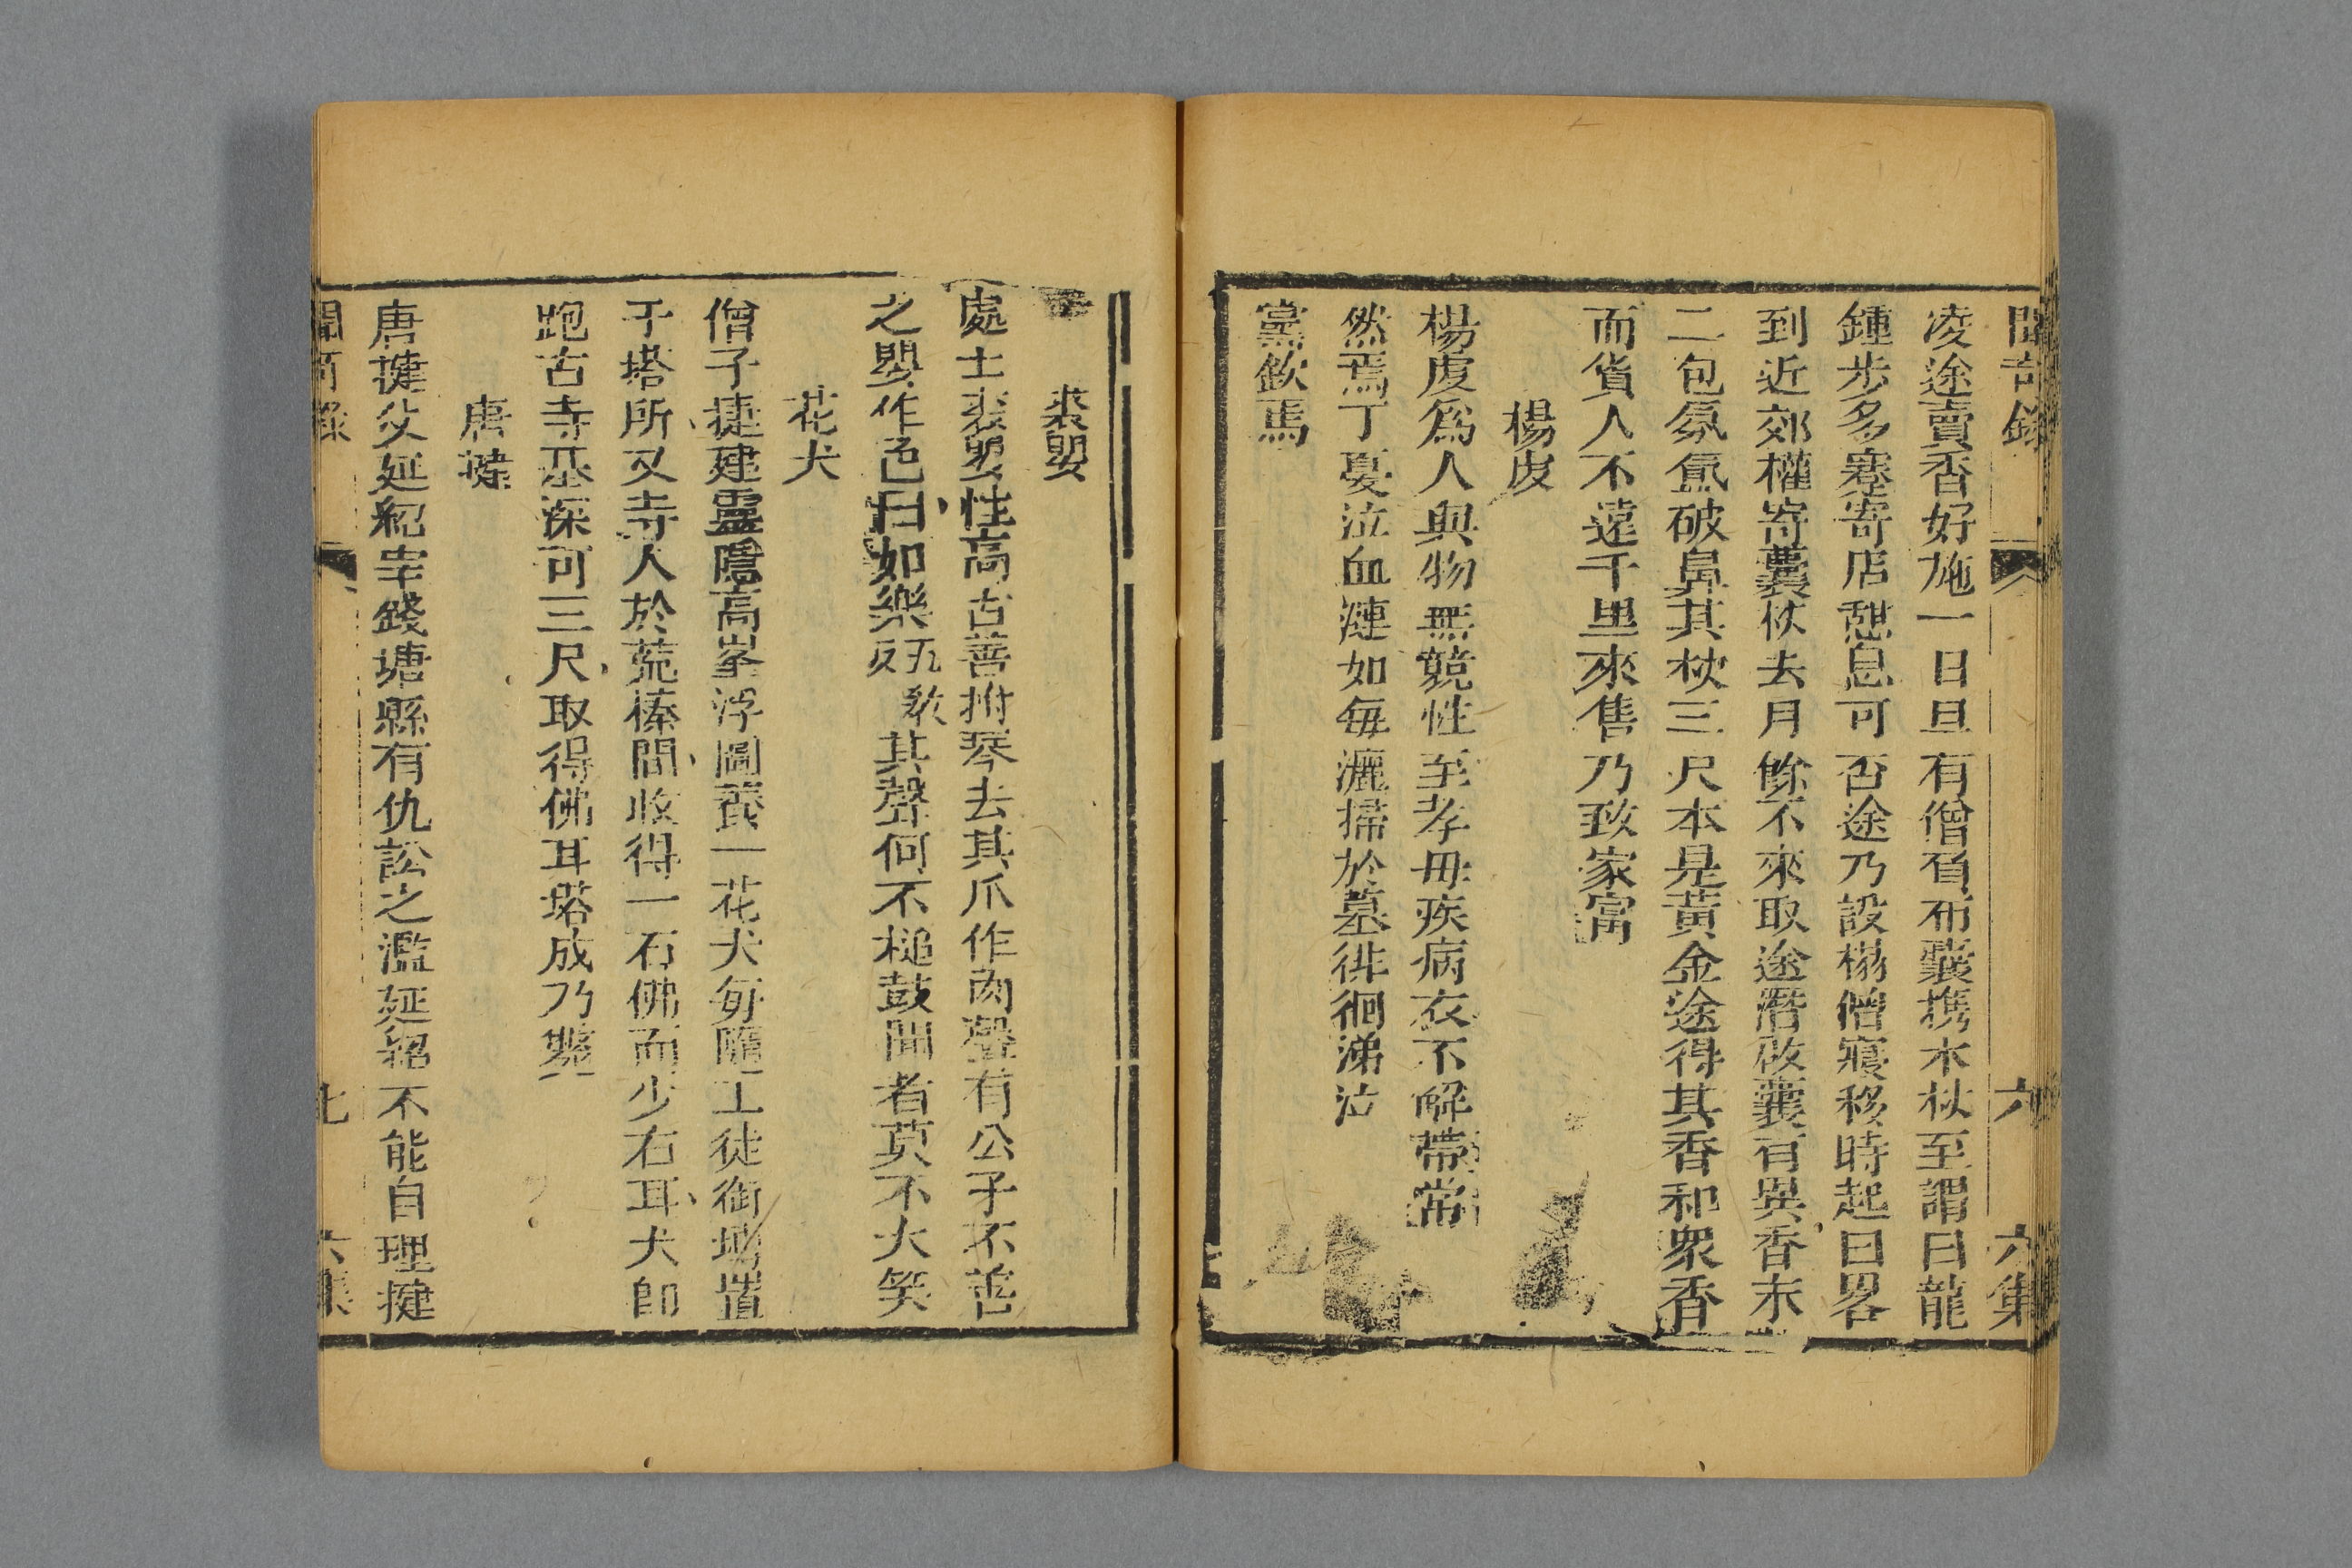 聞奇錄 六 六集
凌途賣香好施一日旦有僧負布囊携木杖至謂曰龍
鍾步多蹇寄店憩息可否途乃設榻僧寢移時起曰畧
到近郊權寄囊杖去月餘不來取途潛啟囊有異香末
二包氛氳破鼻其杖三尺本是黃金途得其香和衆香
而貨人不遠千里來售乃致家富
楊䖍
楊䖍爲人與物無競性至孝母疾病衣不解帶常
然焉丁憂泣血漣如每灑掃於墓徘徊涕泣
黨欽焉
裘㛮
處士裘㛮性高古善拊琴去其爪作肉聲有公子不善
之㛮作色曰如樂五敎反其聲何不槌鼓聞者莫不大笑
花犬
僧子捷建靈隱高峯浮圖養一花犬每隨工徒銜塼置
于塔所又寺人於荒榛間收得一石佛而少右耳犬卽
跑古寺基深可三尺取得佛耳塔成乃斃
唐揵
唐揵父延紹宰錢塘縣有仇訟之濫延紹不能自理揵
聞奇錄 七 六集